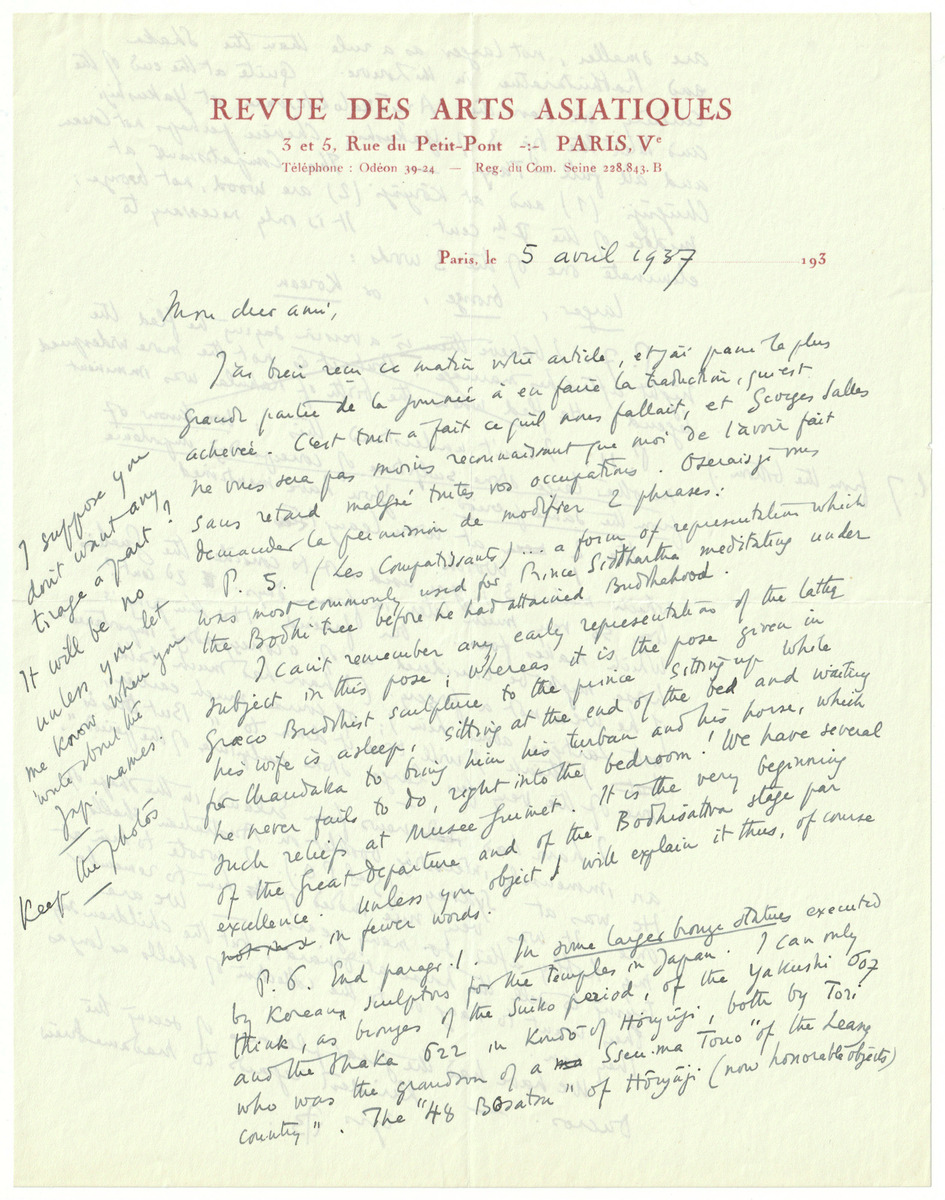 REVUE DES ARTS ASIATIQUES
3 et 5, Rue du Petit-Pont -:- PARIS, Ve
Téléphone : Odéon 39-24 — Reg. du Com. Seine 228.843. B
Paris, le 5 avril 1937 193
Mon cher ami,
J'ai bien reçu ce matin votre article, et j'ai passé la plus
grande partie de la journée à en faire la traduction, qui est
achevée. C'est tout à fait ce qu'il nous fallait, et Georges Salles
ne vous sera pas moins reconnaissant que moi de l'avoir fait
sans retard malgré toutes vos occupations. Oserais-je vous
demander la permission de modifier 2 phrases :
P. 5. (Les Compatissants) ... a form of representation which
was most commonly used for Prince Siddhartha meditating under
the Bodhi tree before he had attained Budhahood.
I can't remember any early representation of the latter
subject in this pose ; whereas it is the pose given in
Græco Buddhist sculpture to the prince sitting up while
his wife is asleep, sitting at the end of the bed and waiting
for Chandaka to bring him his turban and his horse, which
he never fails to do, right into the bedroom ! We have several
such reliefs at Musée Guimet. It is the very beginning
of the Great Departure and of the Bodhisattva stage par
excellence. Unless you object I will explain it thus, of course
in fewer words.
P. 6. End paragr. 1. In some larger bronze statues executed
by Korean sculptors for the temples in Japan. I can only
think, as bronzes of the Suiko period, of the Yakushi 607
and the Shaka 622 in Kondō of Hōryūji, both by Tori
who was the grandson of a "Sseu-ma Tono" of the Leang
country". The "48 Bosatsu" of Hōryūji (now honorable objects)
I suppose you
don't want any
tirage à part ?
It will be no
unless you let
me know when you
write about the
Jap. names.
Keep the photos